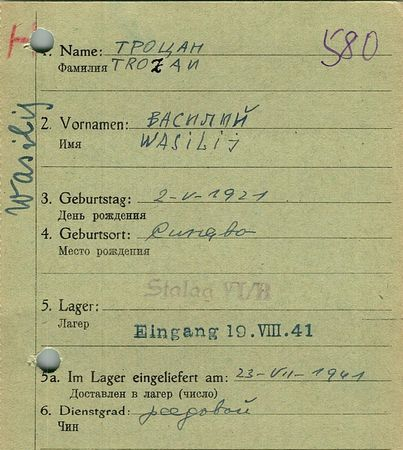 H
580
1. Name: ТРОЦАН
Фамилия TROZAN
Wasilij
2. Vornamen: ВАСИЛИЙ
Имя WASILIJ
3. Geburtstag: 2-V-1921
День рождения
4. Geburtsort:
Место рождения
Stalag VI/B
5. Lager:
Лагер Eingang 19.VIII.41
5a. Im Lager eingeliefert am: 23-VII-1941
Доставлен в лагер (число)
6. Dienstgrad: рядовой
Чин